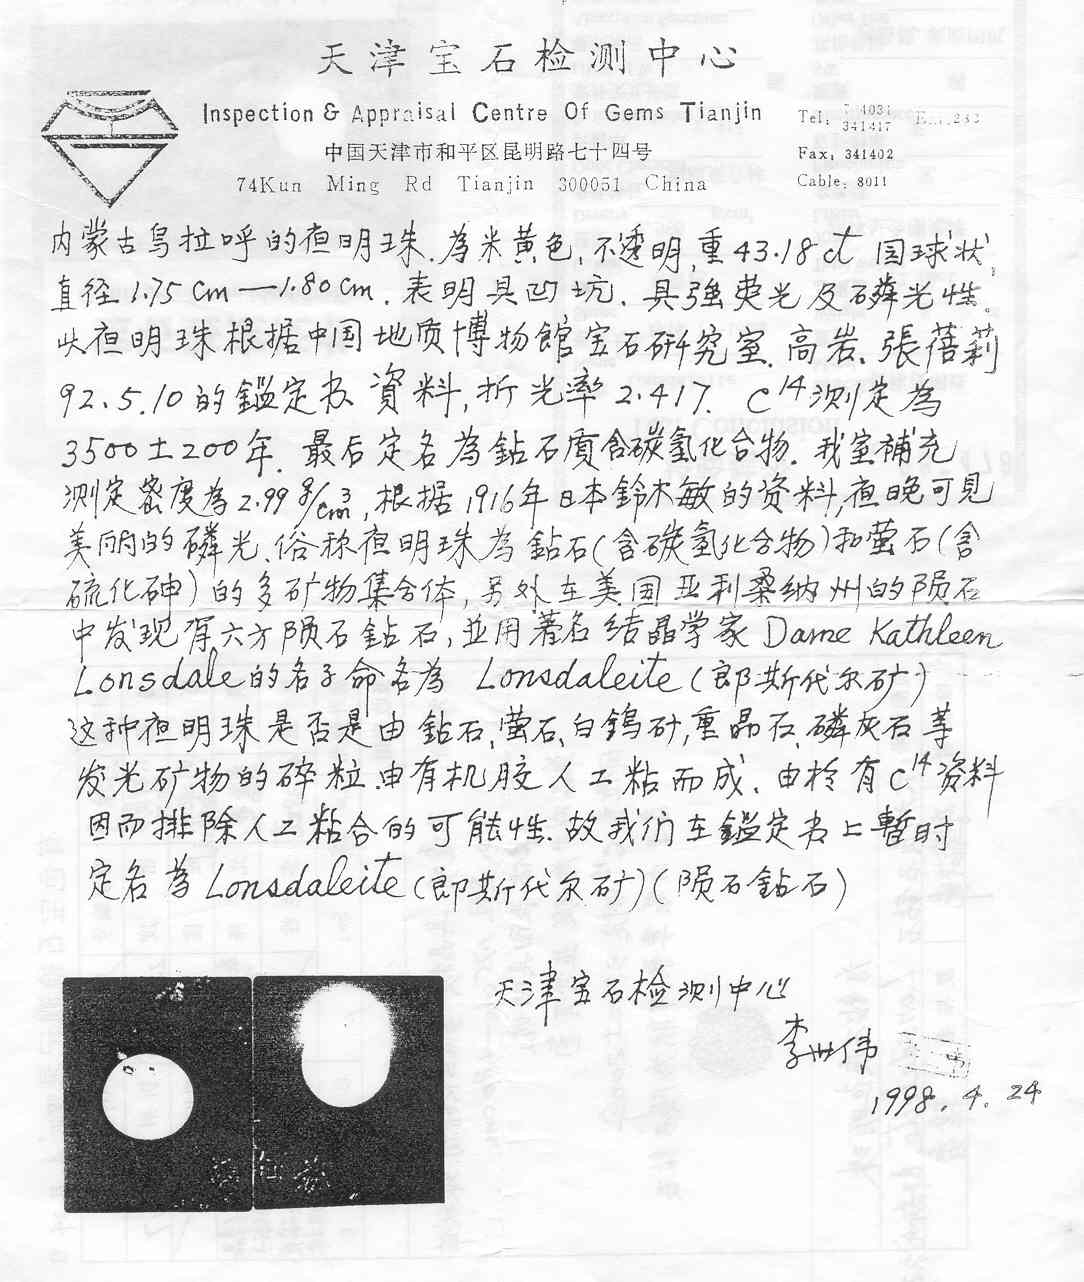 天津宝石检测中心
Inspection & Appraisal Centre Of Gems Tianjin
中国天津市和平区昆明路七十四号
74Kun Ming Rd Tianjin 300051 China
Tel: 4034
341417
Fax: 341402
Cable: 8011
内蒙古乌拉呼的夜明珠.為米黄色,不透明,重43.18ct 园球状,
直径1.75cm—1.80cm.表明具凹坑.具強荧光及磷光性。
此夜明珠根据中国地质博物館宝石研究室.高岩.張蓓莉
92.5.10的鑑定书資料,折光率2.417. C14测定為
3500±200年.最后定名為鉆石質含碳氢化合物.我室補充
测定密度為2.99g/cm3,根据1916年日本鈴木敏的资料,夜晚可見
美丽的磷光.俗称夜明珠為鉆石(含碳氢化合物)和萤石(含
硫化砷)的多矿物集合体,另外在美国亚利桑纳州的陨石
中发现有六方陨石鉆石,並用著名结晶学家Dame Kathleen
Lonsdale的名子命名為 Lonsdaleite(郎斯代尔矿)
这种夜明珠是否是由鉆石、萤石、白鎢矿,重晶石、磷灰石等
发光矿物的碎粒.由有机胶人工粘而成.由于有C14资料
因而排除人工粘合的可能性.故我们在鑑定书上暫时
定名為Lonsdaleite(郎斯代尔矿)(陨石鉆石)
天津宝石检测中心
李世伟
1998.4.24